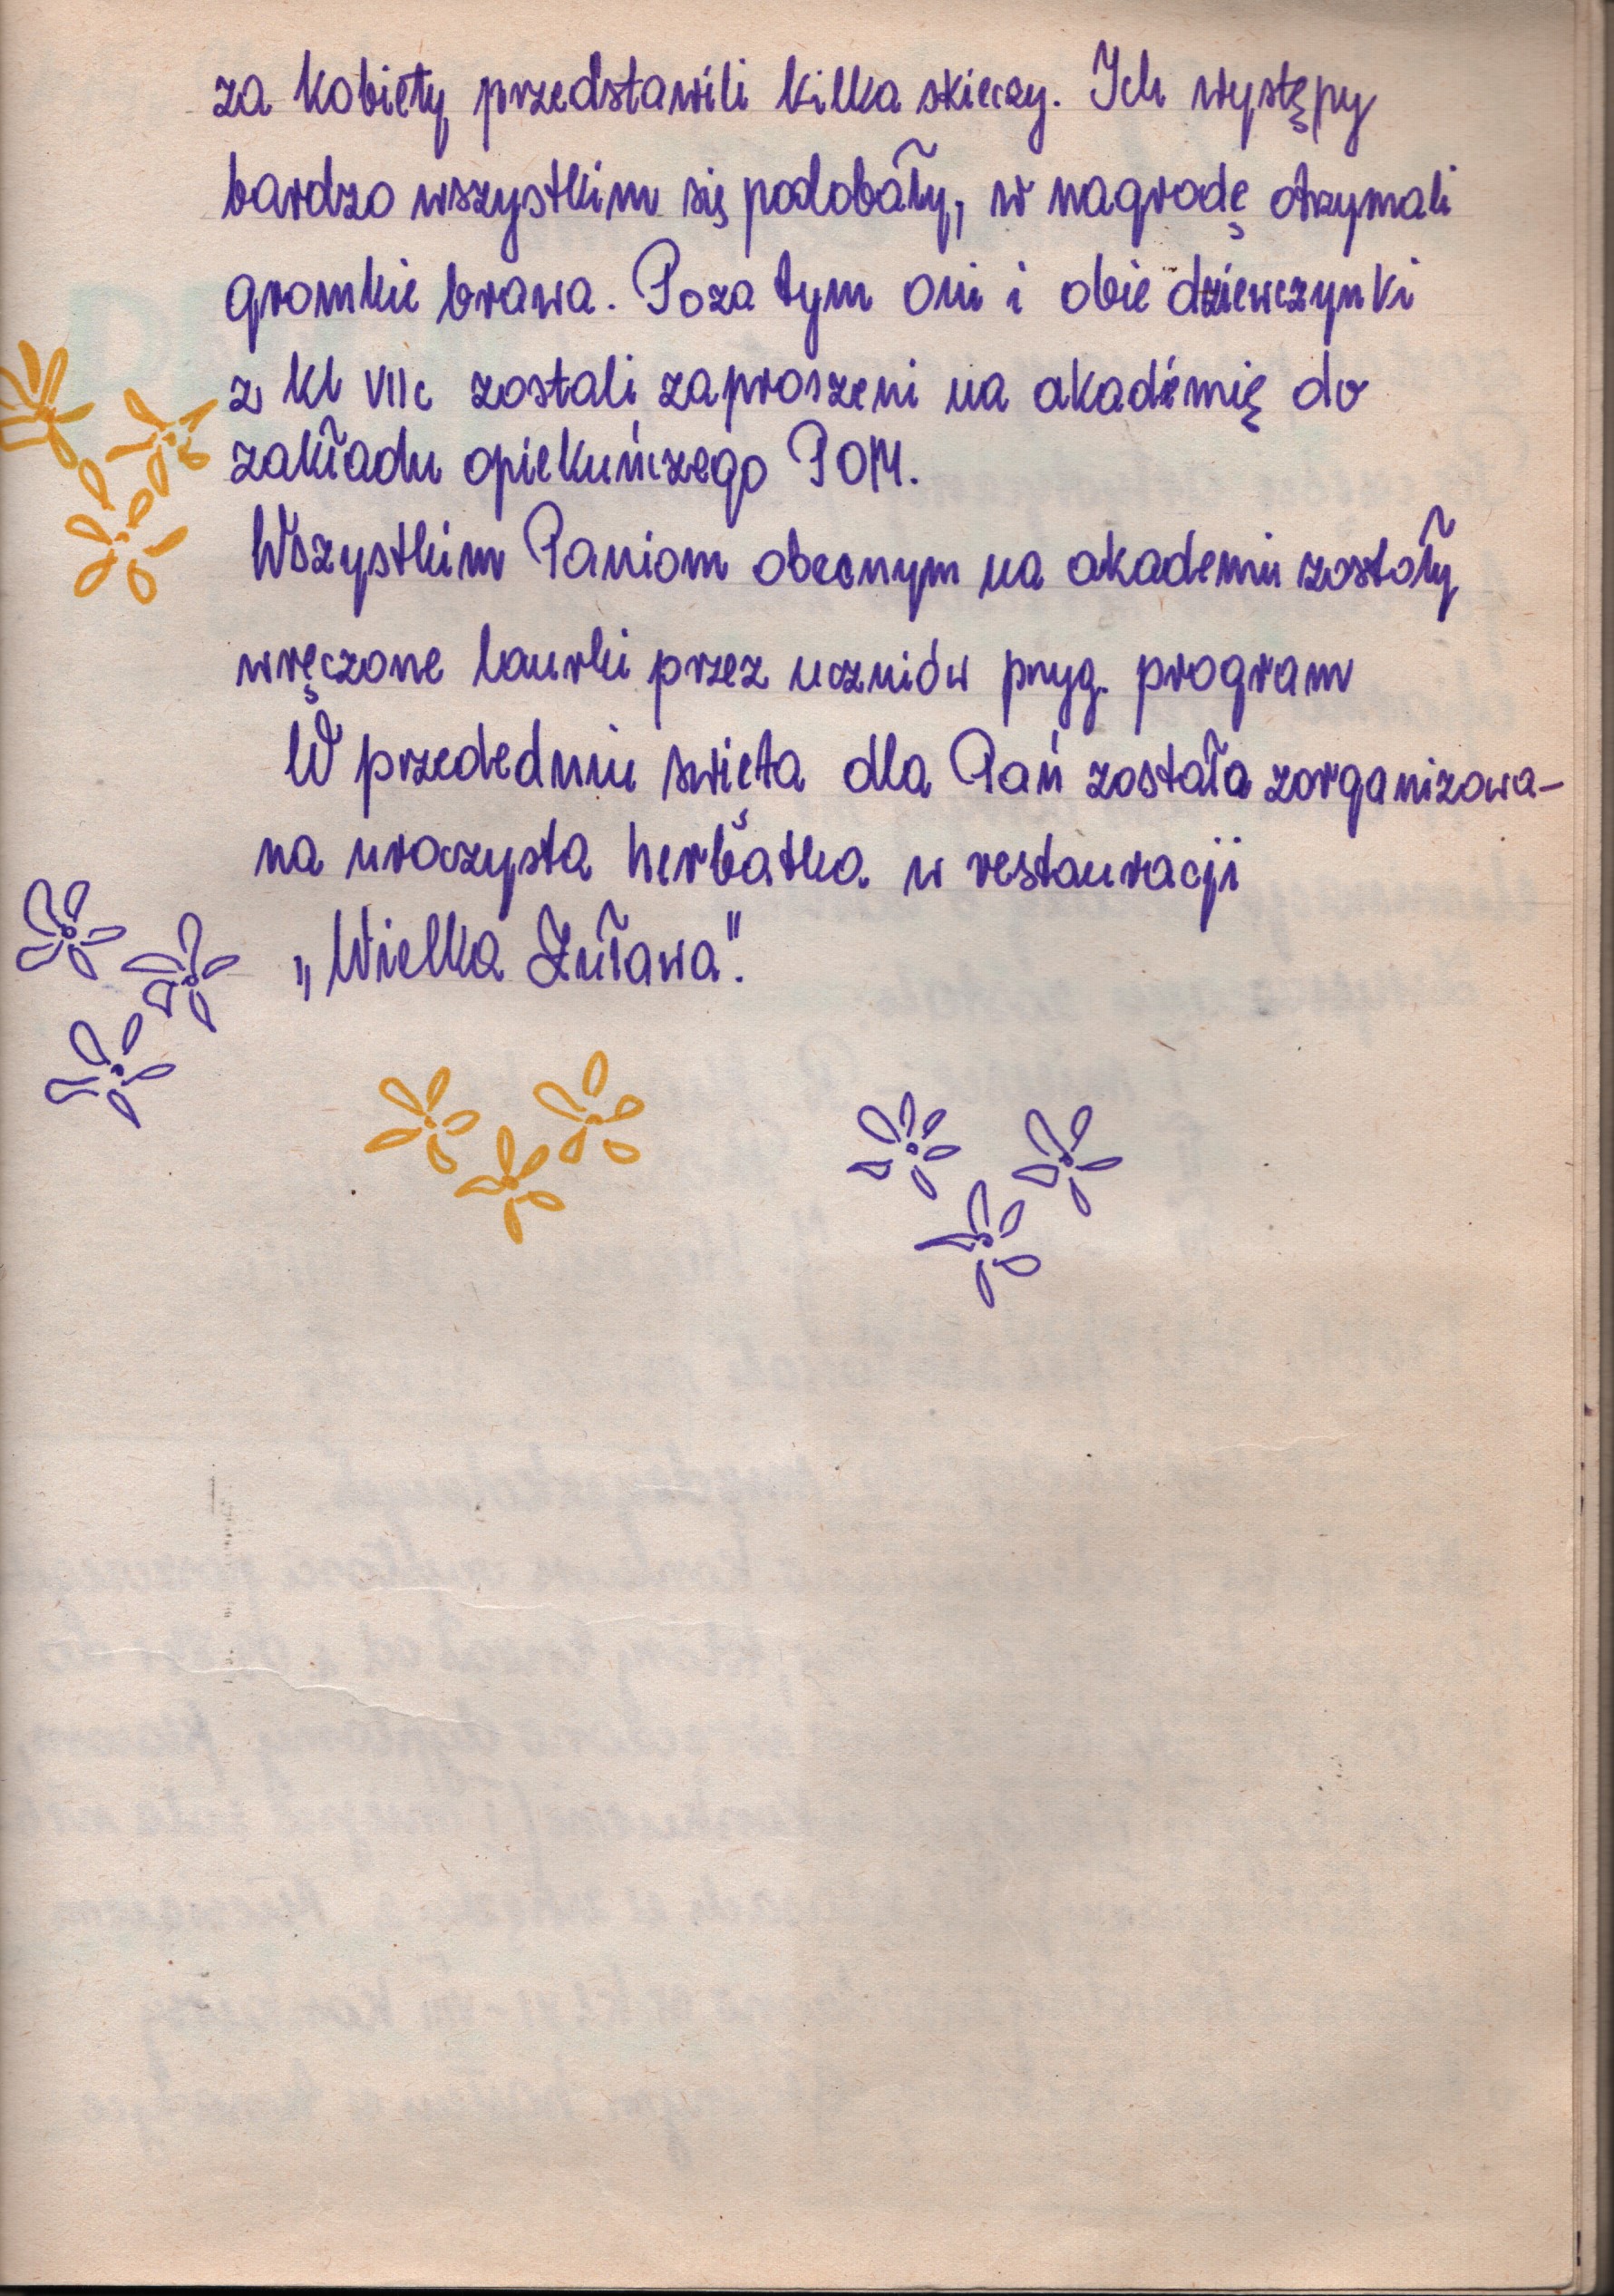 za kobiety przedstawili kilka skieczy. Ich występy
bardzo wszystkim się podobały, w nagrodę otrzymali
gromkie brawa. Poza tym oni i obie dziewczynki
z kl VIIc zostali zaproszeni na akademię do
zakładu opiekuńczego POM.
Wszystkim Paniom obecnym na akademii zostały
wręczone laurki przez uczniów przyg. program
W przededniu święta dla Pań została zorganizowa-
na uroczysta herbatka w restauracji
„Wielka Żuława".